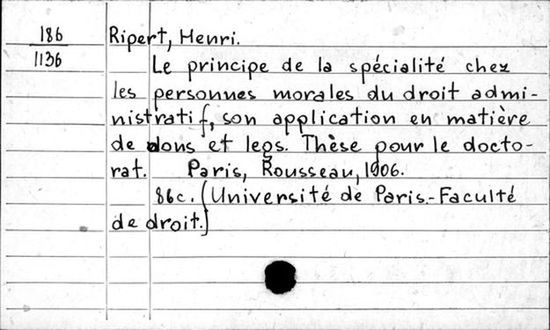 186
1136
Ripert, Henri.
Le principe de la spécialité chez
les personnes morales du droit admi-
nistratif, son application en matière
de dons et legs. Thèse pour le docto-
rat. Paris, Rousseau, 1906.
86c. (Université de Paris.-Faculté
de droit.)